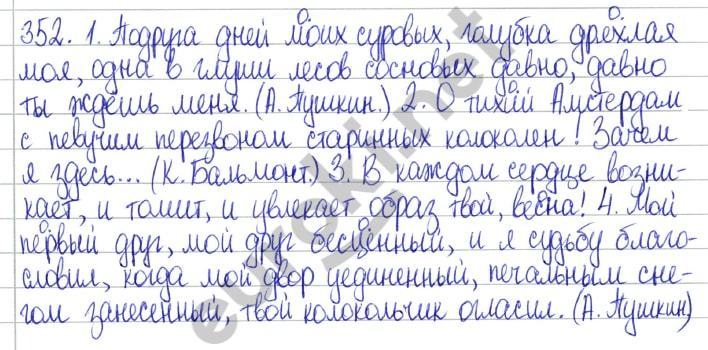 352. 1. Подруга дней моих суровых, голубка дряхлая
моя, одна в глуши лесов сосновых давно, давно
ты ждёшь меня. (А. Пушкин.) 2. О тихий Амстердам
с певучим перезвоном старинных колоколен! Зачем
я здесь... (К. Бальмонт.) 3. В каждом сердце возни-
кает, и томит, и увлекает образ твой, весна! 4. Мой
первый друг, мой друг бесценный, и я судьбу благо-
словил, когда мой двор уединенный, печальным сне-
гом занесенный, твой колокольчик огласил. (А. Пушкин)
euroki.net